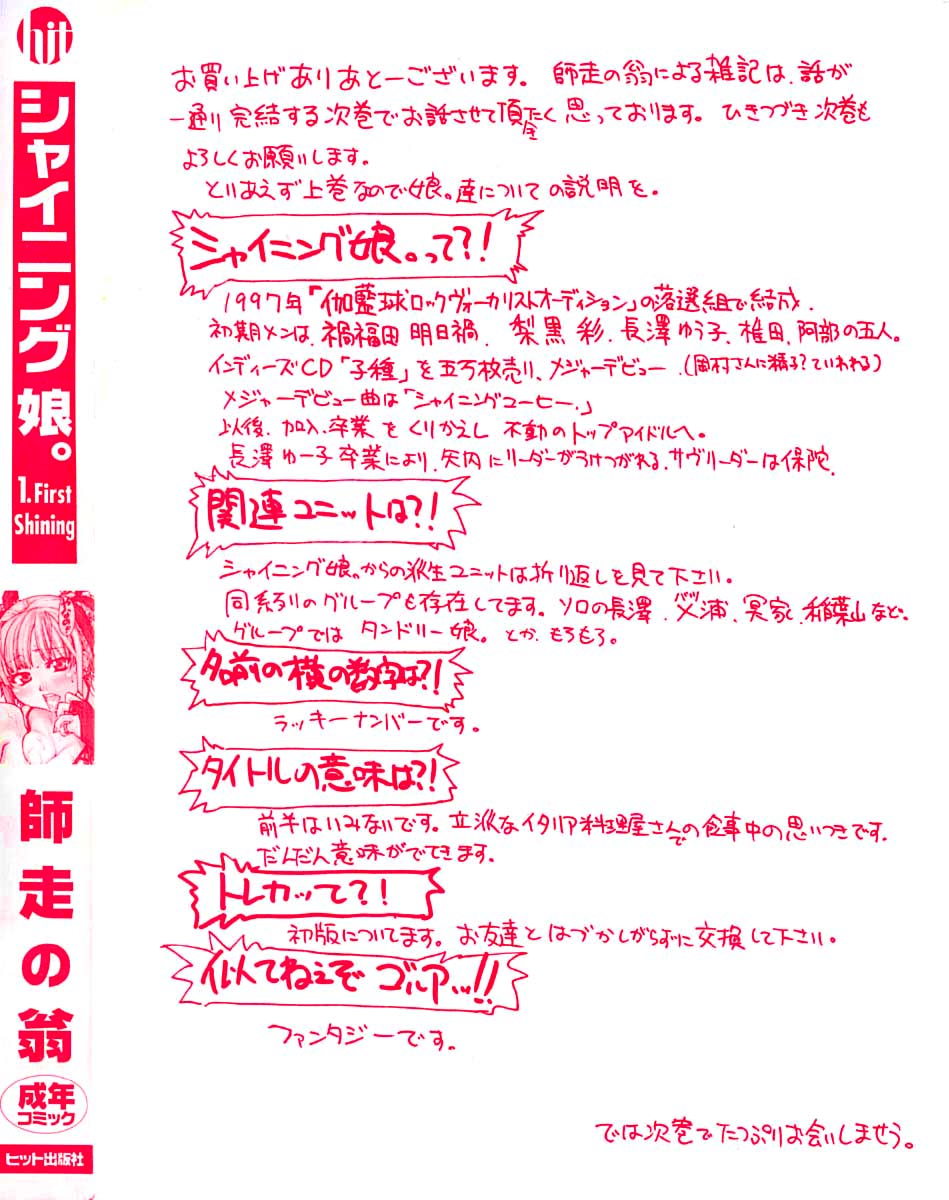 hit
シャイニング娘。
1.First
Shining
師走の翁
成年
コミック
ヒット出版社
お買い上げありあとーございます。 師走の翁による雑記は、話が
一通り完結する次巻でお話させて頂たく思っております。 ひきつづき次巻も
よろしくお願いします。
とりあえず上巻なので娘。達についての説明を。
シャイニング娘。って?!
1997年「伽藍球ロックヴォーカリストオーディション」の落選組で結成.
初期メンは、禍福田 明日禍、 梨黒 彩、長澤ゆう子、椎田、阿部の五人。
インディーズCD「子種」を五万枚売り、メジャーデビュー.(岡村さんに 子?ていわれる)
メジャーデビュー曲は「シャイニングコーヒー.」
以後、加入、卒業をくりかえし 不動のトップアイドルへ。
長澤ゆー子卒業により、矢内にリーダーがうけつがれる、サヴリーダーは保陀.
関連ユニットは?!
シャイニング娘。からの派生ユニットは折り返しを見て下さい。
同系列のグループも存在してます。ソロの長澤、 浦、冥家、稲葉山など。
グループでは タンドリー娘。とか、もろもろ。
名前の横の数字は?!
ラッキーナンバーです。
タイトルの意味は?!
前半はいみないです。立派なイタリア料理屋さんでの食事中の思いつきです.
だんだん意味がでてきます.
トレカッて?!
初版についてます。お友達とはづかしがらずに交換して下さい。
似てねぇぞ ゴルアッ!!
ファンタジーです。
では次巻でたっぷりお会いしませう。